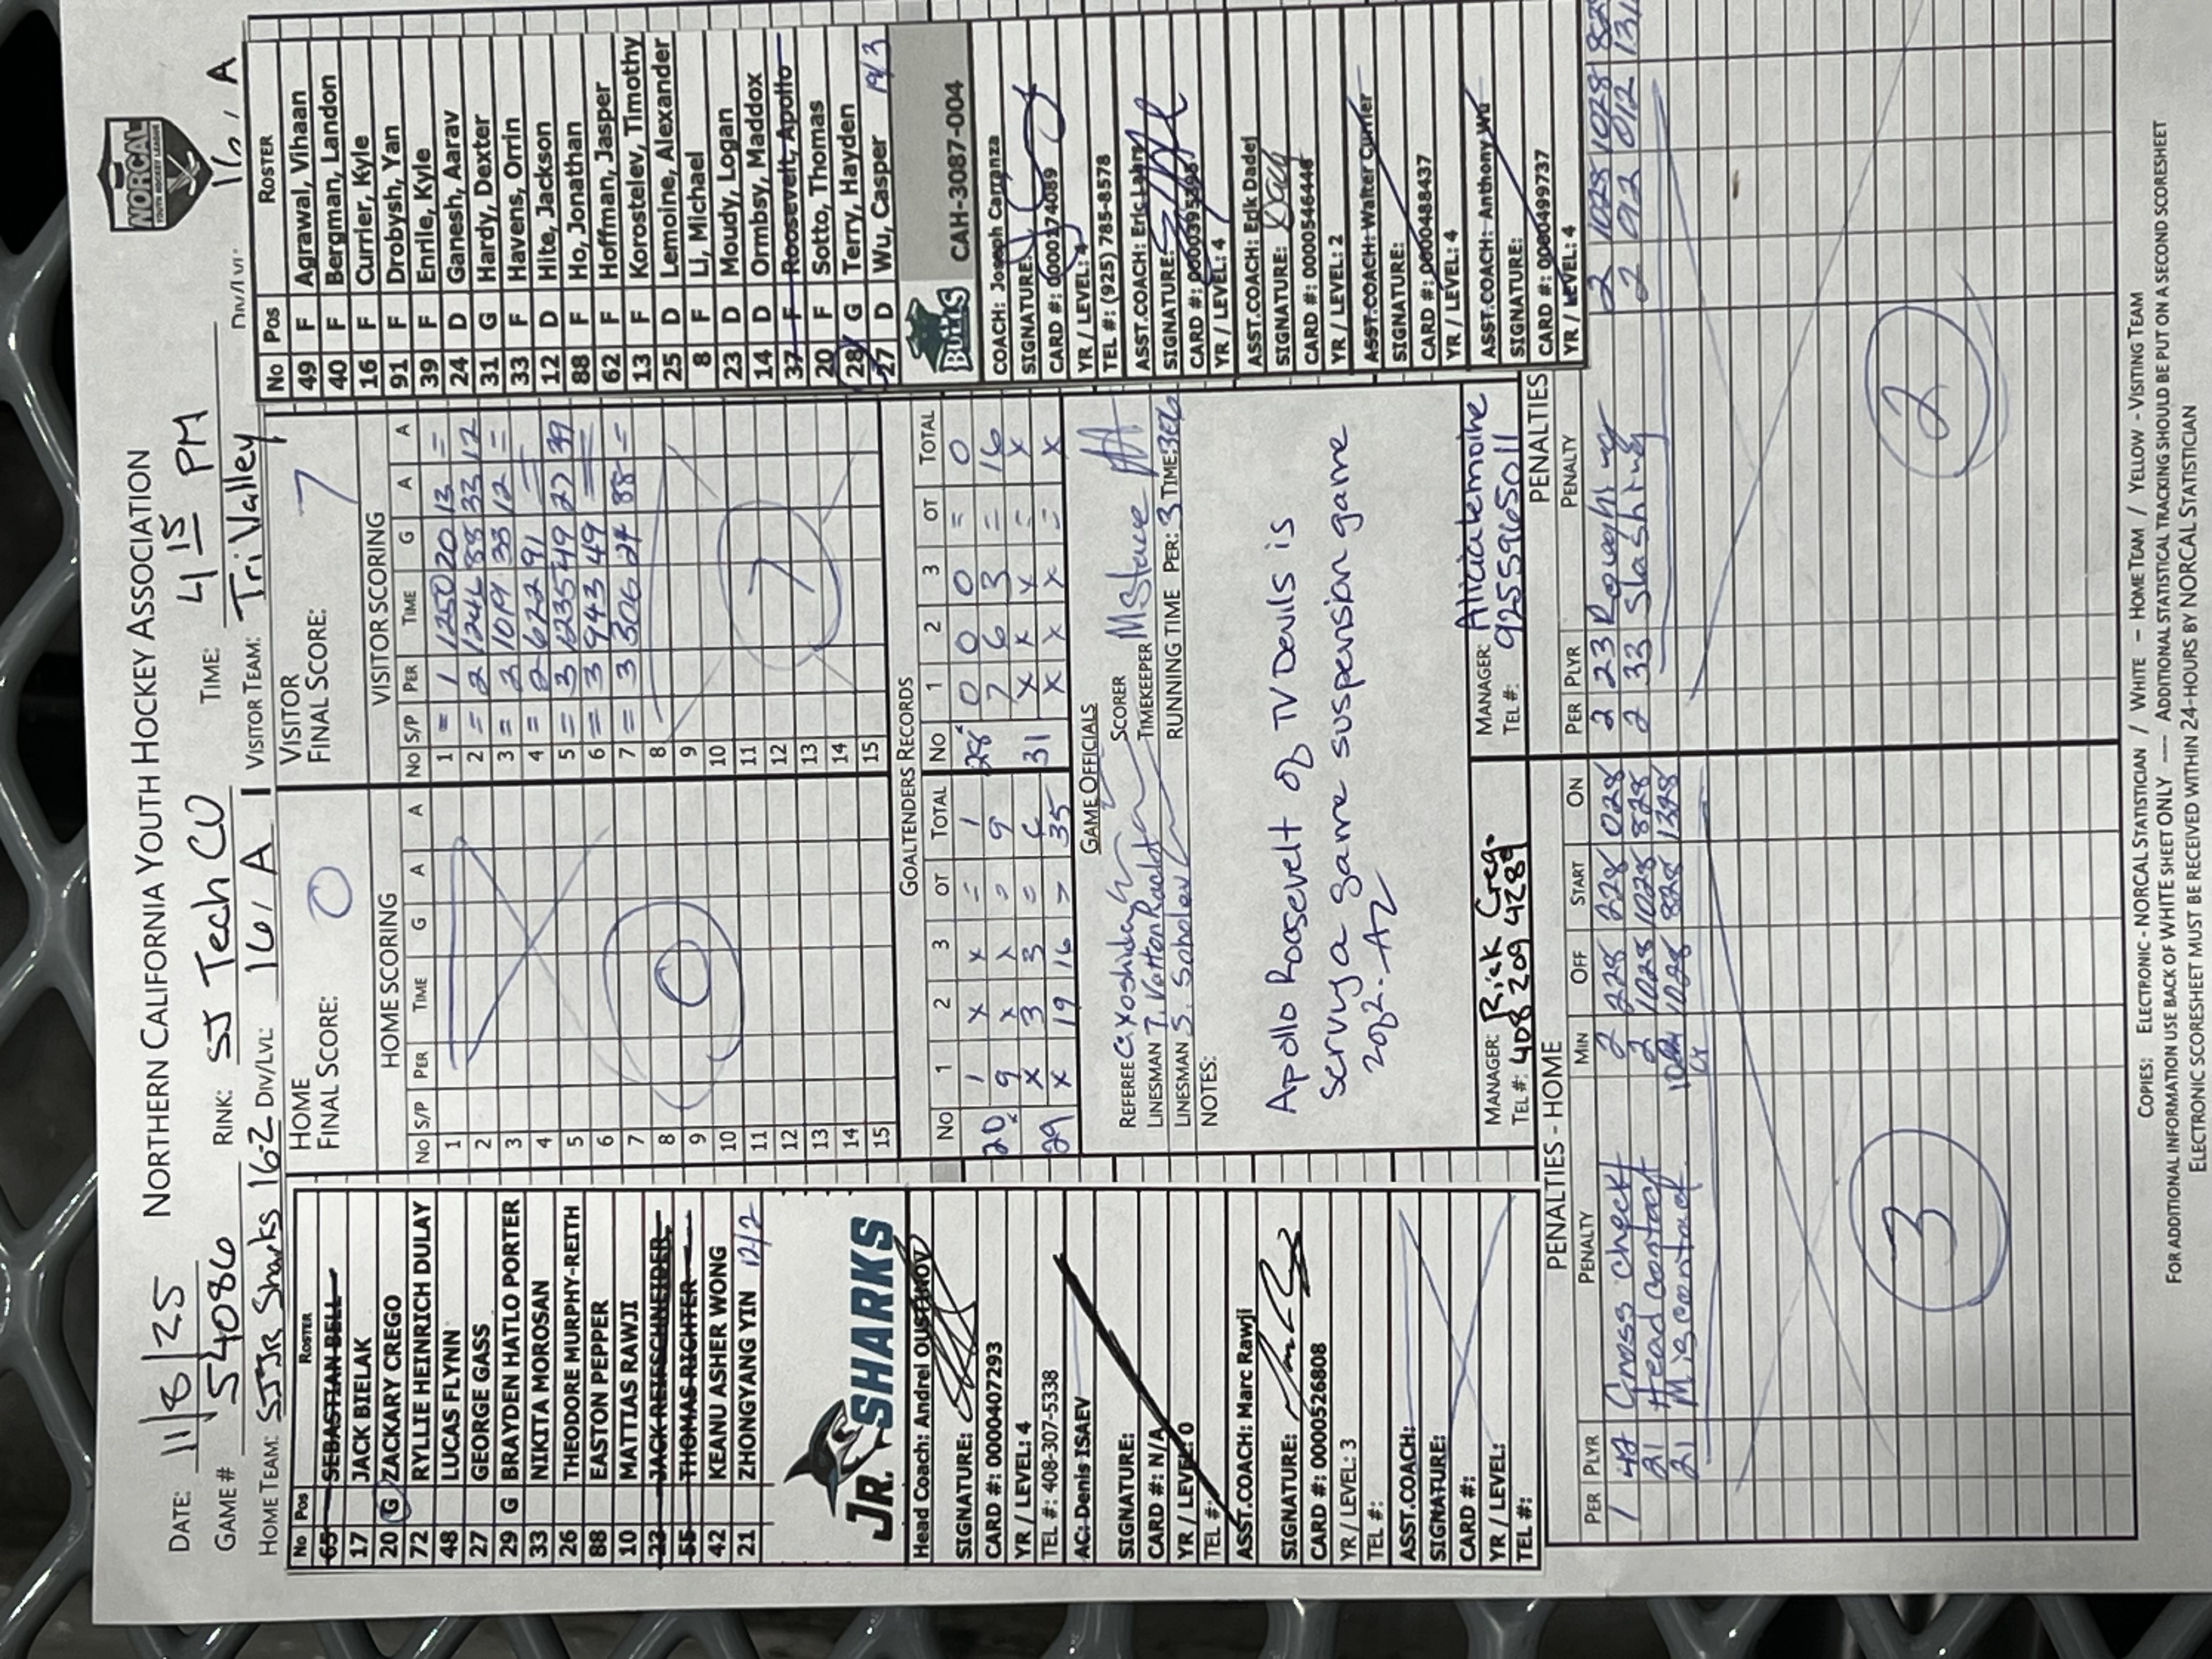 NORTHERN CALIFORNIA YOUTH HOCKEY ASSOCIATION
NORCAL
YOUTH HOCKEY LEAGUE
DATE: 11/8/25
GAME # 54086 RINK: SJ Tech CU TIME: 4 15 PM
HOME TEAM: SJ Jr Sharks 16-2 DIV/LVL: 16, A VISITOR TEAM: Tri Valley DIV/LVL: 16, A
No Pos ROSTER
65 SEBASTIAN BELL
17 JACK BIELAK
20 G ZACKARY CREGO
72 RYLLIE HEINRICH DULAY
48 LUCAS FLYNN
27 GEORGE GASS
29 G BRAYDEN HATLO PORTER
33 NIKITA MOROSAN
26 THEODORE MURPHY-REITH
88 EASTON PEPPER
10 MATTIAS RAWJI
23 JACK REIFSCHNEIDER
55 THOMAS RICHTER
42 KEANU ASHER WONG
21 ZHONGYANG YIN 12/2
JR. SHARKS
Head Coach: Andrei OUSTINOV
SIGNATURE:
CARD #: 0000407293
YR / LEVEL: 4
TEL #: 408-307-5338
AC: Denis ISAEV
SIGNATURE:
CARD #: N/A
YR / LEVEL: 0
TEL #:
ASST.COACH: Marc Rawji
SIGNATURE:
CARD #: 0000526808
YR / LEVEL: 3
TEL #:
ASST.COACH:
SIGNATURE:
CARD #:
YR / LEVEL:
TEL #:
HOME
FINAL SCORE: 0
HOME SCORING
No S/P PER TIME G A A
1
2
3
4
5
6
7
8
9
10
11
12
13
14
15
0
VISITOR
FINAL SCORE: 7
VISITOR SCORING
No S/P PER TIME G A A
1 = 1 1250 20 13 =
2 = 2 1246 88 33 12
3 = 2 1019 33 12 =
4 = 2 622 91 = =
5 = 3 1235 49 27 39
6 = 3 943 49 = =
7 = 3 306 24 88 =
8
9
10
11
12
13
14
15
7
GOALTENDERS RECORDS
No 1 2 3 OT TOTAL No 1 2 3 OT TOTAL
20 1 x x = 1 28 0 0 0 = 0
9 x x = 9 7 6 3 = 16
29 x 3 3 = 6 31 x x x = x
x 19 16 = 35 x x x = x
GAME OFFICIALS
REFEREE C. Yoshida SCORER M Stave
LINESMAN TIMEKEEPER
LINESMAN RUNNING TIME PER: 3 TIME: 306
NOTES:
Apollo Roosevelt of TV Devils is
Servya game suspension game
MANAGER: Rick Crego
TEL #: 408 209 4289
MANAGER: Alicia Lemoine
TEL #: 9255965011
No Pos ROSTER
49 F Agrawal, Vihaan
40 F Bergman, Landon
16 F Currier, Kyle
91 F Drobysh, Yan
39 F Enrile, Kyle
24 D Ganesh, Aarav
31 G Hardy, Dexter
33 F Havens, Orrin
12 D Hite, Jackson
88 F Ho, Jonathan
62 F Hoffman, Jasper
13 F Korostelev, Timothy
25 D Lemoine, Alexander
8 F Li, Michael
23 D Moudy, Logan
14 D Ormbsy, Maddox
37 F Roosevelt, Apollo
20 F Sotto, Thomas
28 G Terry, Hayden
27 D Wu, Casper 19/3
CAH-3087-004
COACH: Joseph Carranza
SIGNATURE:
CARD #: 0000174089
YR / LEVEL: 4
TEL #: (925) 785-8578
ASST.COACH: Eric
SIGNATURE:
CARD #:
YR / LEVEL: 4
ASST.COACH: Erik Dadej
SIGNATURE:
CARD #: 0000546446
YR / LEVEL: 2
ASST.COACH: Walter Currier
SIGNATURE:
CARD #: 0000488437
YR / LEVEL: 4
ASST.COACH: Anthony Wu
SIGNATURE:
CARD #: 0000499737
YR / LEVEL: 4
PENALTIES - HOME
PER PLYR PENALTY MIN OFF START ON
1 42 Cross check 2 228 228 028
21 Head contact 2 1028 1028 828
21 Misconduct 10 1028 828 1328
3
PENALTIES
PER PLYR PENALTY
2 23 Roughing 2 1028 1028
2 33 Slashing 2 012 012
2
COPIES: ELECTRONIC - NORCAL STATISTICIAN / WHITE – HOME TEAM / YELLOW - VISITING TEAM
FOR ADDITIONAL INFORMATION USE BACK OF WHITE SHEET ONLY ---- ADDITIONAL STATISTICAL TRACKING SHOULD BE PUT ON A SECOND SCORESHEET
ELECTRONIC SCORESHEET MUST BE RECEIVED WITHIN 24-HOURS BY NORCAL STATISTICIAN